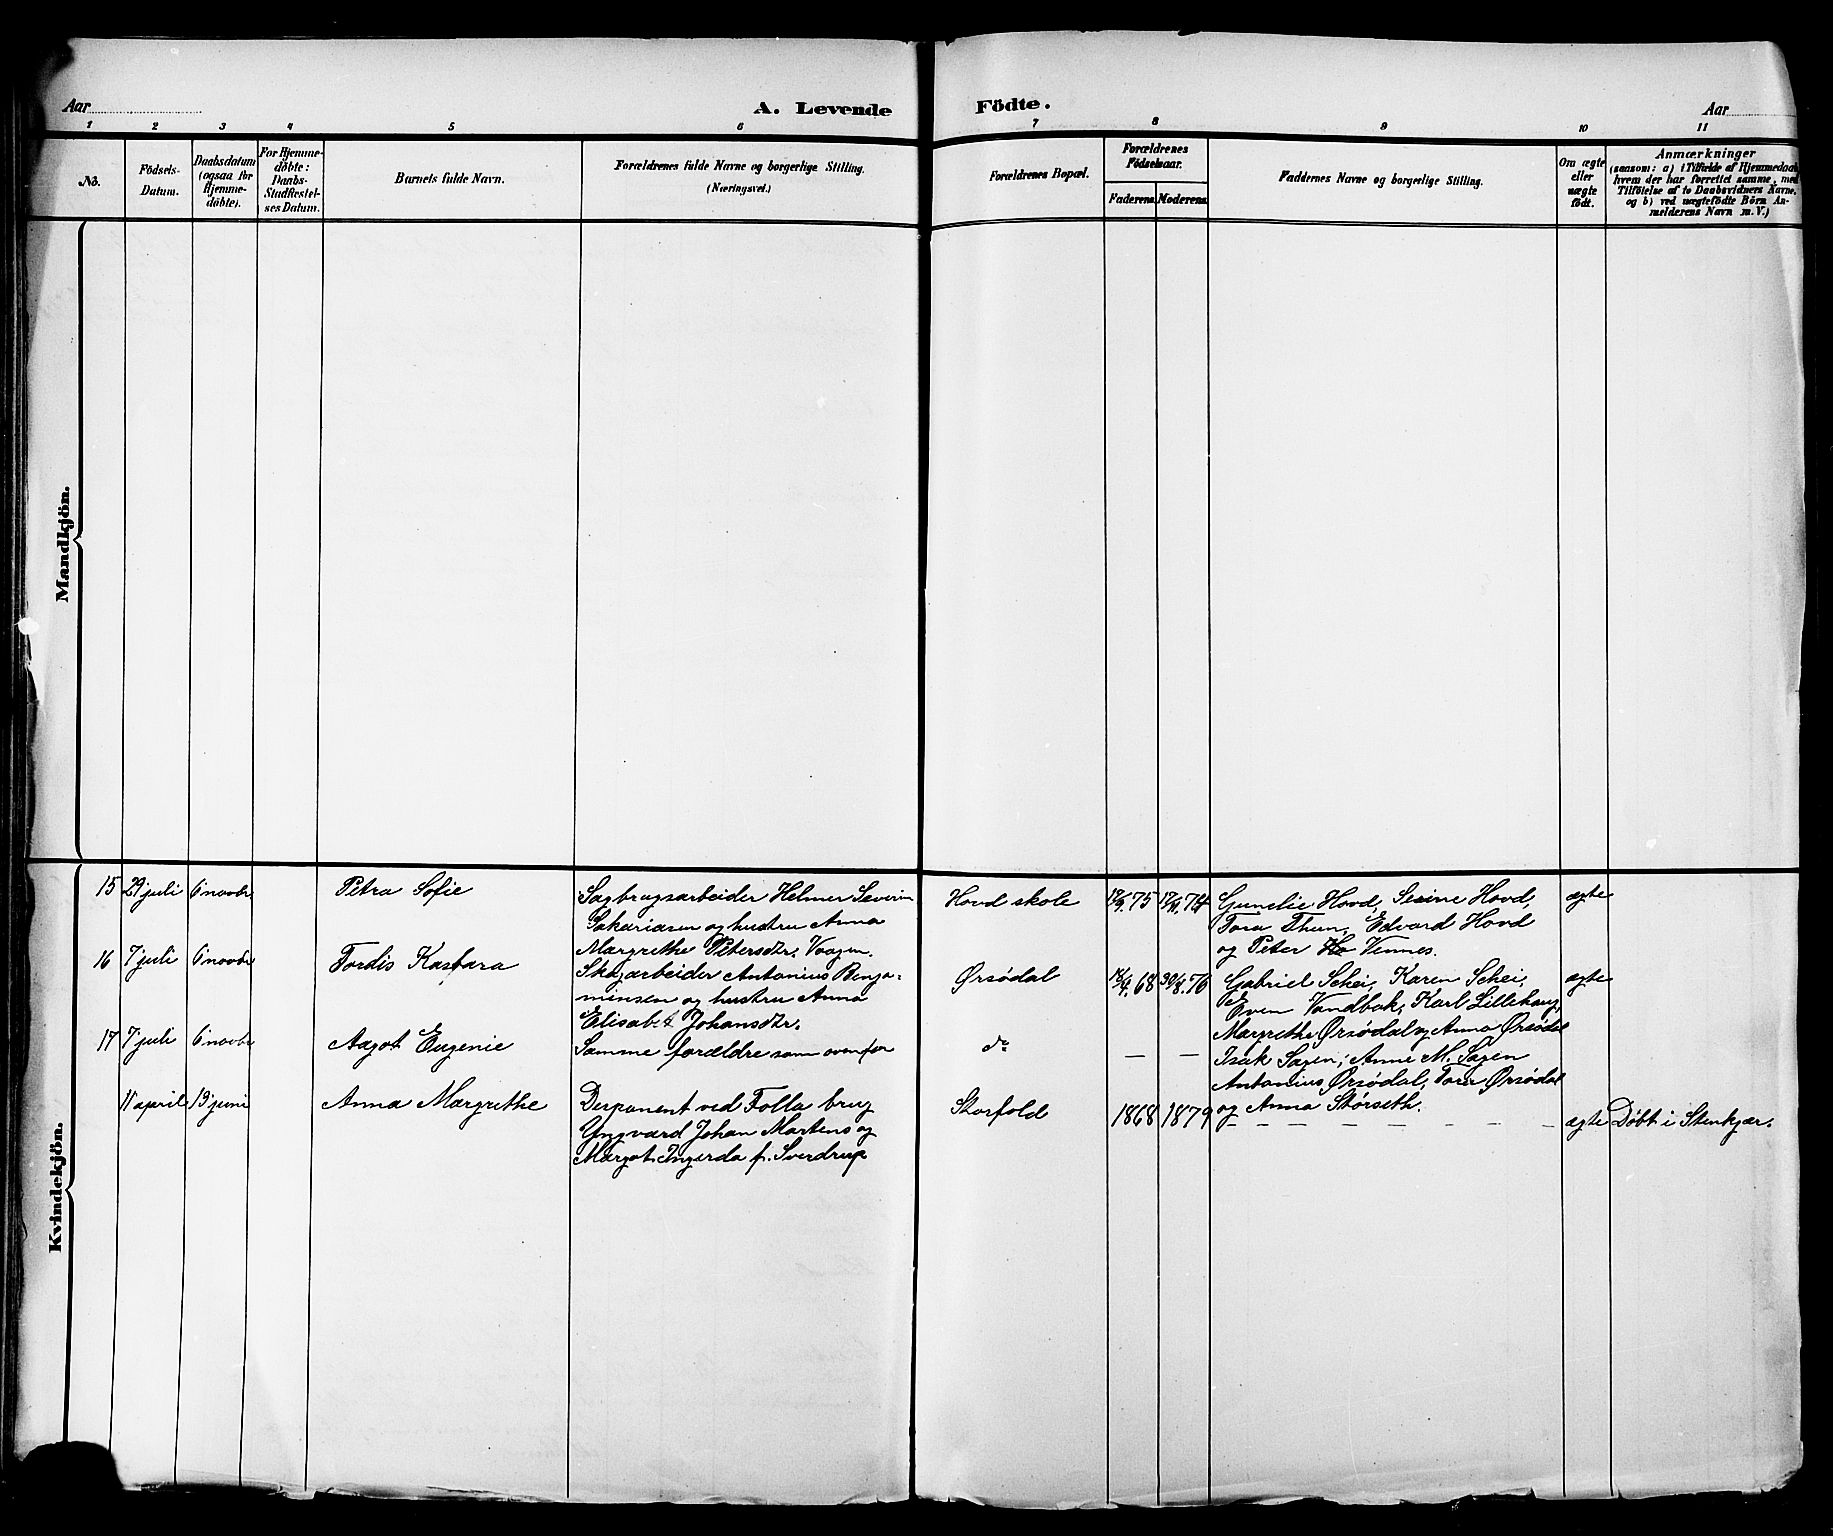 Aar
A. Levende Födte.
Aar
1 2 3 4 5 6 7 8 9 10 11
No.
Födsels-
Datum.
Daabsdatum
(ogsaa for
Hjemme-
döbte).
For Hjemme-
döbte:
Daabs-
Stadfæstel-
ses Datum.
Barnets fulde Navn.
Forældrenes fulde Navne og borgerlige Stilling.
(Næringsvei.)
Forældrenes Bopæl.
Forældrenes
Födselsaar.
Faderens. Moderens.
Faddernes Navne og borgerlige Stilling.
Om ægte
eller
uægte
födt.
Anmærkninger
(saasom: a) i Tilfælde af Hjemmedaab,
hvem der har forrettet samme, med
Tilföielse af to Daabsvidners Navne,
og b) ved uægtefödte Börn An-
melderens Navn m. V.)
Mandkjön.
Kvindekjön.
15 29 juli 6 novbr Petra Sofie
Sagbrugsarbeider Helmer Severin
Sakariasen og hustru Anna
Margrethe Petersdtr. Vaagen.
Hovd skole
75 74
Gunelie Hovd, Sesine Hovd,
Tora Thun, Edvard Hovd
og Peter Ho Vennes.
ægte
16 7 juli 6 novbr Tordis Kasbara
Skogarbeider Antonius Benja-
minsen og hustru Anna
Elisabet Johansdtr.
Ørsödal
68 30/8.76
Gabriel Schei, Karen Schei,
Even Vandbak, Karl Lillehaug,
Margrethe Ørsödal og Anna Ørsödal
ægte
17 7 juli 6 novbr Aagot Eugenie
Samme forældre som ovenfor
do
— —
Isak Sagen, Anne M. Sagen
Antonius Ørsödal, Tora Ørsödal
og Anna Störseth.
11 april 13 juni Anna Margrethe
Disponent ved Folla brug
Yngvard Johan Martens og
Margot Ingerda f. Sverdrup
Storfold
1868 1879
— — — — — — — —
ægte
Döbt i Stenkjær.